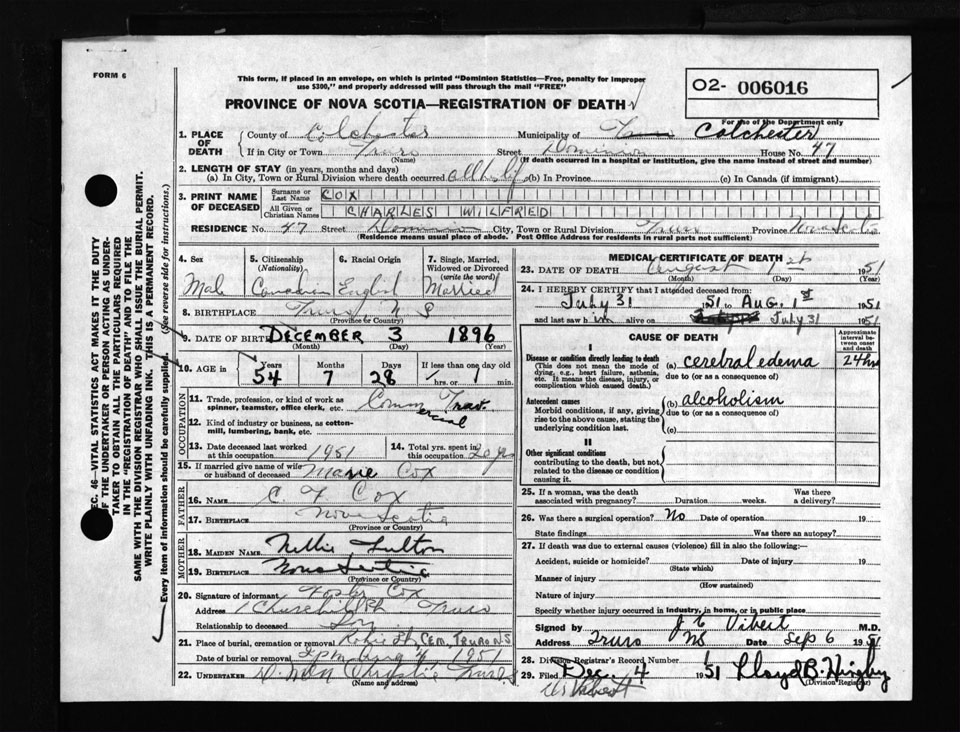 FORM 6
This form, if placed in an envelope, on which is printed "Dominion Statistics—Free, penalty for improper
use $300," and properly addressed will pass through the mail "FREE"
PROVINCE OF NOVA SCOTIA—REGISTRATION OF DEATH
O2- 006016
For use of the Department only
1. PLACE OF DEATH
County of Colchester Municipality of Truro Colchester
If in City or Town Truro Street Dominion House No. 47
(Name) (If death occurred in a hospital or institution, give the name instead of street and number)
2. LENGTH OF STAY (in years, months and days)
(a) In City, Town or Rural Division where death occurred all life (b) In Province (c) In Canada (if immigrant)
3. PRINT NAME OF DECEASED
Surname or Last Name COX
All Given or Christian Names CHARLES WILFRED
RESIDENCE No. 47 Street Dominion City, Town or Rural Division Truro Province Nova Scotia
(Residence means usual place of abode. Post Office Address for residents in rural parts not sufficient)
4. Sex Male
5. Citizenship (Nationality) Canadian
6. Racial Origin English
7. Single, Married, Widowed or Divorced (write the word) Married
8. BIRTHPLACE Truro, N S
(Province or Country)
9. DATE OF BIRTH DECEMBER 3 1896
(Month) (Day) (Year)
10. AGE in Years Months Days If less than one day old
54 7 28 hrs. or min.
OCCUPATION
11. Trade, profession, or kind of work as spinner, teamster, office clerk, etc. Commercial Trav.
12. Kind of industry or business, as cotton-mill, lumbering, bank, etc.
13. Date deceased last worked at this occupation 1951
14. Total yrs. spent in this occupation
15. If married give name of wife or husband of deceased Marie Cox
FATHER
16. NAME C. F. Cox
17. BIRTHPLACE Nova Scotia
(Province or Country)
MOTHER
18. MAIDEN NAME Nellie Fulton
19. BIRTHPLACE Nova Scotia
(Province or Country)
20. Signature of informant Foster Cox
Address 1 Churchill Truro
Relationship to deceased Son
21. Place of burial, cremation or removal Robie St, CEM. TRURO N.S
Date of burial or removal 1951
22. UNDERTAKER Christie Truro
(Name and address)
MEDICAL CERTIFICATE OF DEATH
23. DATE OF DEATH August 1st 1951
(Month) (Day) (Year)
24. I HEREBY CERTIFY that I attended deceased from:
July 31 1951 to Aug. 1st 1951
and last saw him alive on July 31 1951
CAUSE OF DEATH
Approximate interval between onset and death
I
Disease or condition directly leading to death (a) cerebral edema 24 hrs
(This does not mean the mode of dying, e.g., heart failure, asthenia, etc. It means the disease, injury, or complication which caused death.)
due to (or as a consequence of)
Antecedent causes (b) alcoholism
Morbid conditions, if any, giving rise to the above cause, stating the underlying condition last.
due to (or as a consequence of)
(c)
II
Other significant conditions
contributing to the death, but not related to the disease or condition causing it.
25. If a woman, was the death associated with pregnancy? Duration weeks. Was there a delivery?
26. Was there a surgical operation? No Date of operation 19
State findings Was there an autopsy?
27. If death was due to external causes (violence) fill in also the following:—
Accident, suicide or homicide? Date of injury 19
(State which)
Manner of injury
(How sustained)
Nature of injury
Specify whether injury occurred in industry, in home, or in public place
Signed by J E Vibert M.D.
Address Truro NS Date Sep 6 1951
28. Division Registrar's Record Number
29. Filed Dec. 4 1951 Lloyd B.
(Division Registrar)
SEC. 46—VITAL STATISTICS ACT MAKES IT THE DUTY
OF THE UNDERTAKER OR PERSON ACTING AS UNDER-
TAKER TO OBTAIN ALL THE PARTICULARS REQUIRED
IN THE "REGISTRATION OF DEATH" AND TO FILE THE
SAME WITH THE DIVISION REGISTRAR WHO SHALL ISSUE THE BURIAL PERMIT.
WRITE PLAINLY WITH UNFADING INK. THIS IS A PERMANENT RECORD.
Every item of information should be carefully supplied. (See reverse side for instructions.)